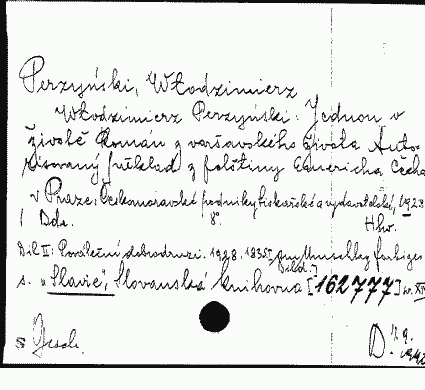 Perzyński, Włodzimierz
Włodzimierz Perzyński: Jednou v
životě Román z varšavského života Auto-
risovaný překlad z polštiny Emericha Čecha
v Praze, Českomoravské podniky tiskařské a vydavatelské, 1928
1 Bde. 8°. Hlw.
Díl II: Pováleční dobrodruzi. 1928. 183 S. farbiges
s. "Slavie", Slovanská knihovna [162777]
S Gesch. D.